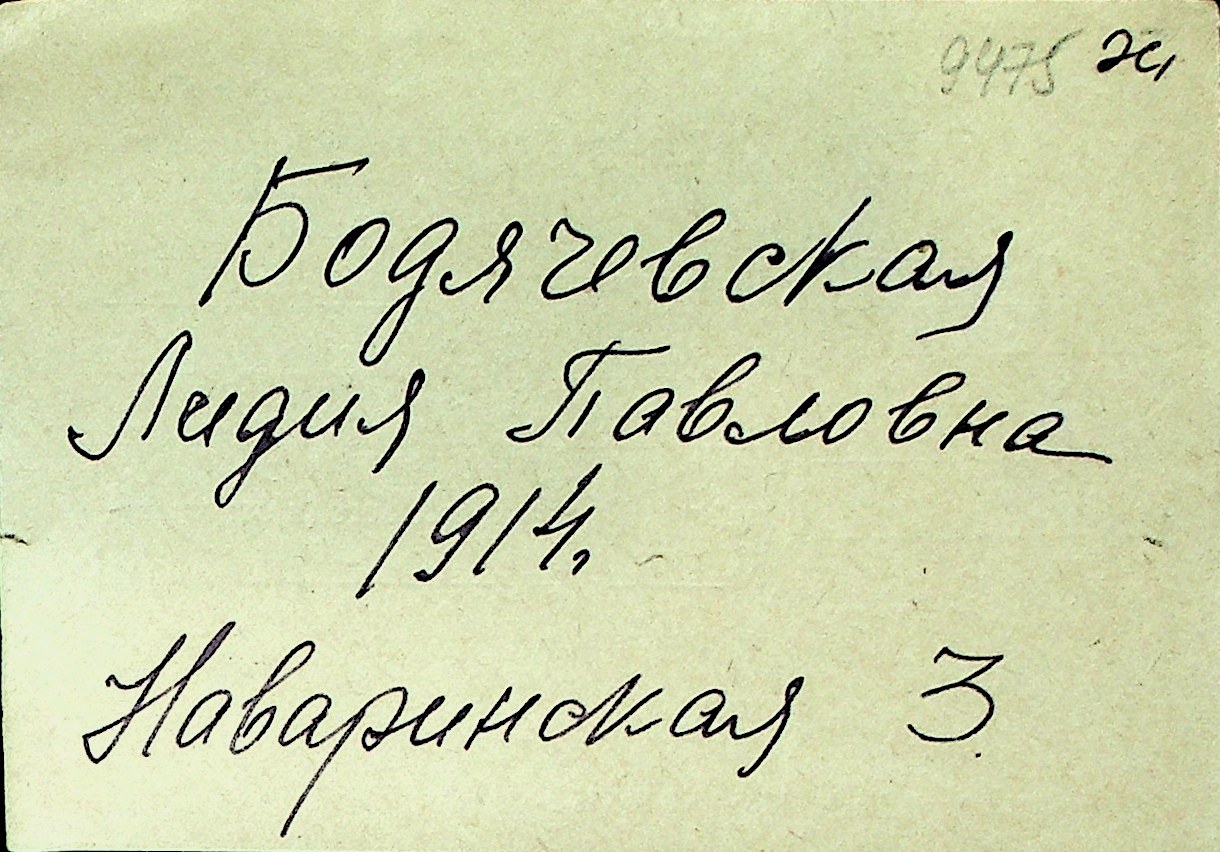 9475 ж
Бодячевская
Лидия Павловна
1914.
Наваринская 3.